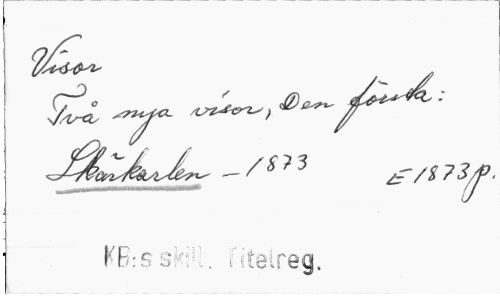 Visor
Två nya visor, Den första:
Skärkarlen - 1873
E 1873 p.
KB:s skill. Titelreg.